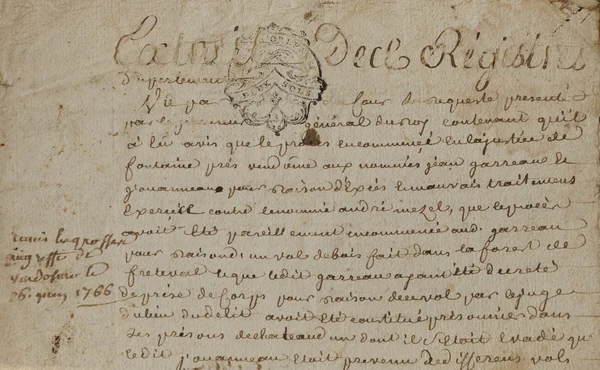 Extrait Des Régistres
Vu par la Cour la requeste presenté
par le général du roy contenant qu'il
à Eu avis que le procès Encommencé En la justice de
fontaine prés vendôme aux nommées jean garreau &
jouanneau pour Raison d'Excès & mauvais traitemens
Exercés contre le nommé andré mezel, que le procès
avoit Eté pareillement incommencé aud. garreau
pour Raison d'un vol de bois fait dans la forest de
freteval & que ledit garreau ayant Eté decreté
de prise de Corps pour Raison de ce vol par le juge
du lieu du delit avoit Eté constitué prisonnier dans
Les prisons de chateaudun dont il s'Etait Evadé que
ledit jouanneau Etoit prevenu de differens vols
DEUX SOLS
remis la grosse
au greffe de
vendosme le
26. juin 1766